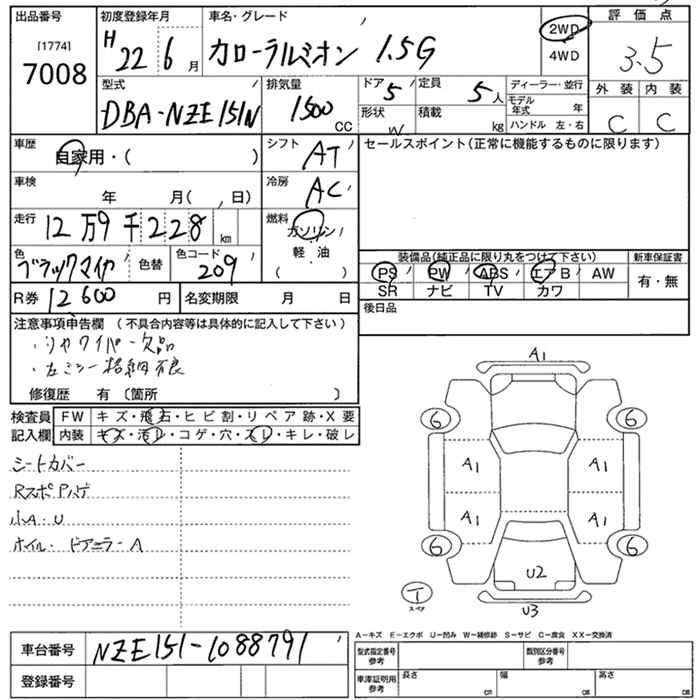 出品番号 初度登録年月 車名・グレード 評価点
[1774]
7008
H 22 6 月
カローラルミオン 1.5G
2WD
4WD
3.5
型式 排気量 ドア 定員 ディーラー・並行 外装 内装
DBA-NZE151N
1500 CC
5
5 人
モデル年式 年
形状 積載
W kg
ハンドル 左・右
C C
車歴 シフト セールスポイント(正常に機能するものに限ります)
自家用・( )
AT
車検 冷房
年 月( , 日)
AC
走行 燃料
12万9千228 km
ガソリン
軽・油
( )
装備品(純正品に限り丸をつけて下さい) 新車保証書
色 色替 色コード
ブラックマイカ
209
PS PW ABS エアB AW
SR ナビ TV カワ
有・無
R券 12600 円 名変期限 月 日
後日品
注意事項申告欄 (不具合内容等は具体的に記入して下さい)
・リヤワイパー欠品
・左ミラー格納不良
修復歴 有 〔箇所 〕
検査員 FW キズ・飛石・ヒビ割・リペア跡・X要
記入欄 内装 キズ・汚レ・コゲ・穴・スレ・キレ・破レ
シートカバー
RスポPハゲ
小A・U
ホイル・ドアミラーA
A1
6 6
A1 A1
A1 A1
6 6
U2
T
スペア
U3
A−キズ E−エクボ U−凹み W−補修跡 S−サビ C−腐食 XX−交換済
車台番号 NZE151-1088791
型式指定番号 参考 類別区分番号 参考
登録番号
車庫証明用 参考 長さ cm 幅 cm 高さ cm